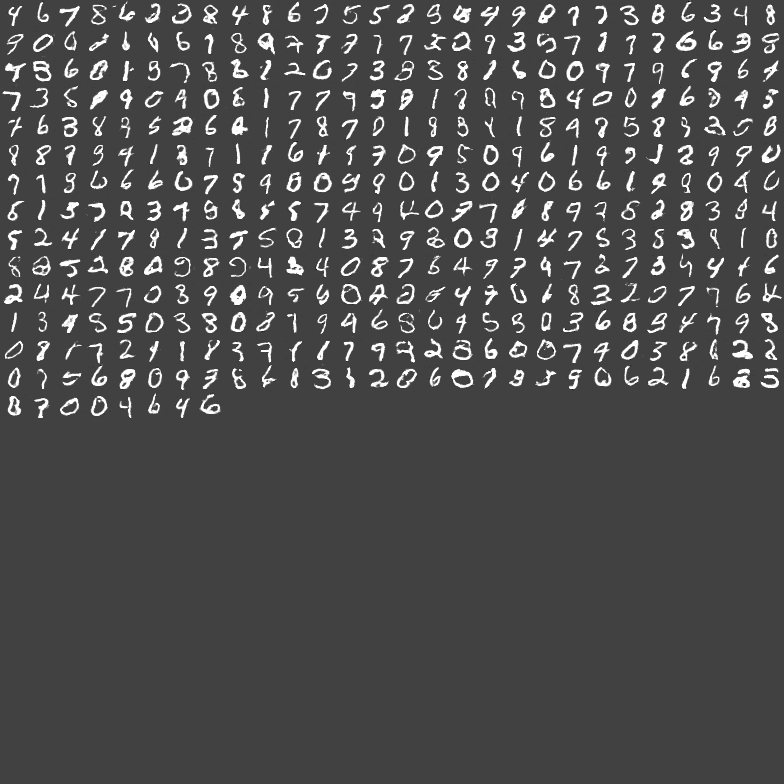 4 6 7 8 6 2 3 8 4 8 6 7 5 5 2 9 4 4 9 8 7 7 3 8 6 3 4 8
9 0 0 1 1 6 1 8 9 2 7 7 7 7 5 2 9 3 5 7 1 7 7 6 6 3 8
7 5 6 8 1 3 7 8 2 1 2 0 7 3 8 3 8 1 6 0 0 9 7 9 6 9 6 7
7 3 5 9 9 0 9 0 6 1 7 7 9 5 9 1 8 0 9 3 4 0 0 9 6 8 9 5
7 6 3 8 9 5 2 6 4 1 7 8 7 0 1 8 3 4 1 8 9 8 5 8 3 2 5 8
8 8 9 3 4 1 3 7 1 1 6 4 9 7 0 9 5 0 9 6 1 9 5 1 2 9 9 0
7 7 8 6 6 6 0 7 5 9 0 0 9 9 0 1 3 0 4 0 6 6 1 9 9 0 4 0
6 1 5 7 2 3 7 8 8 5 5 7 4 9 4 0 9 7 8 8 9 2 6 2 8 3 8 4
5 2 4 1 7 8 1 3 5 5 8 1 3 2 9 2 0 3 1 4 7 5 3 5 9 9 1 0
8 2 5 2 8 2 9 8 9 4 2 4 0 8 7 6 4 9 7 9 7 2 7 3 9 4 4 6
2 4 4 7 7 0 3 9 0 9 5 6 0 2 2 5 4 9 0 6 8 3 2 0 7 7 6 4
1 3 9 5 5 0 3 8 0 8 7 9 9 6 8 0 9 5 8 0 3 6 8 3 4 7 9 8
0 8 1 7 2 9 1 8 3 7 1 1 7 9 9 2 8 6 0 0 7 9 0 3 8 6 2 2
0 7 5 6 8 0 9 7 8 6 8 3 1 2 0 6 0 7 9 5 9 0 6 2 1 6 2 5
8 7 0 0 4 6 4 6